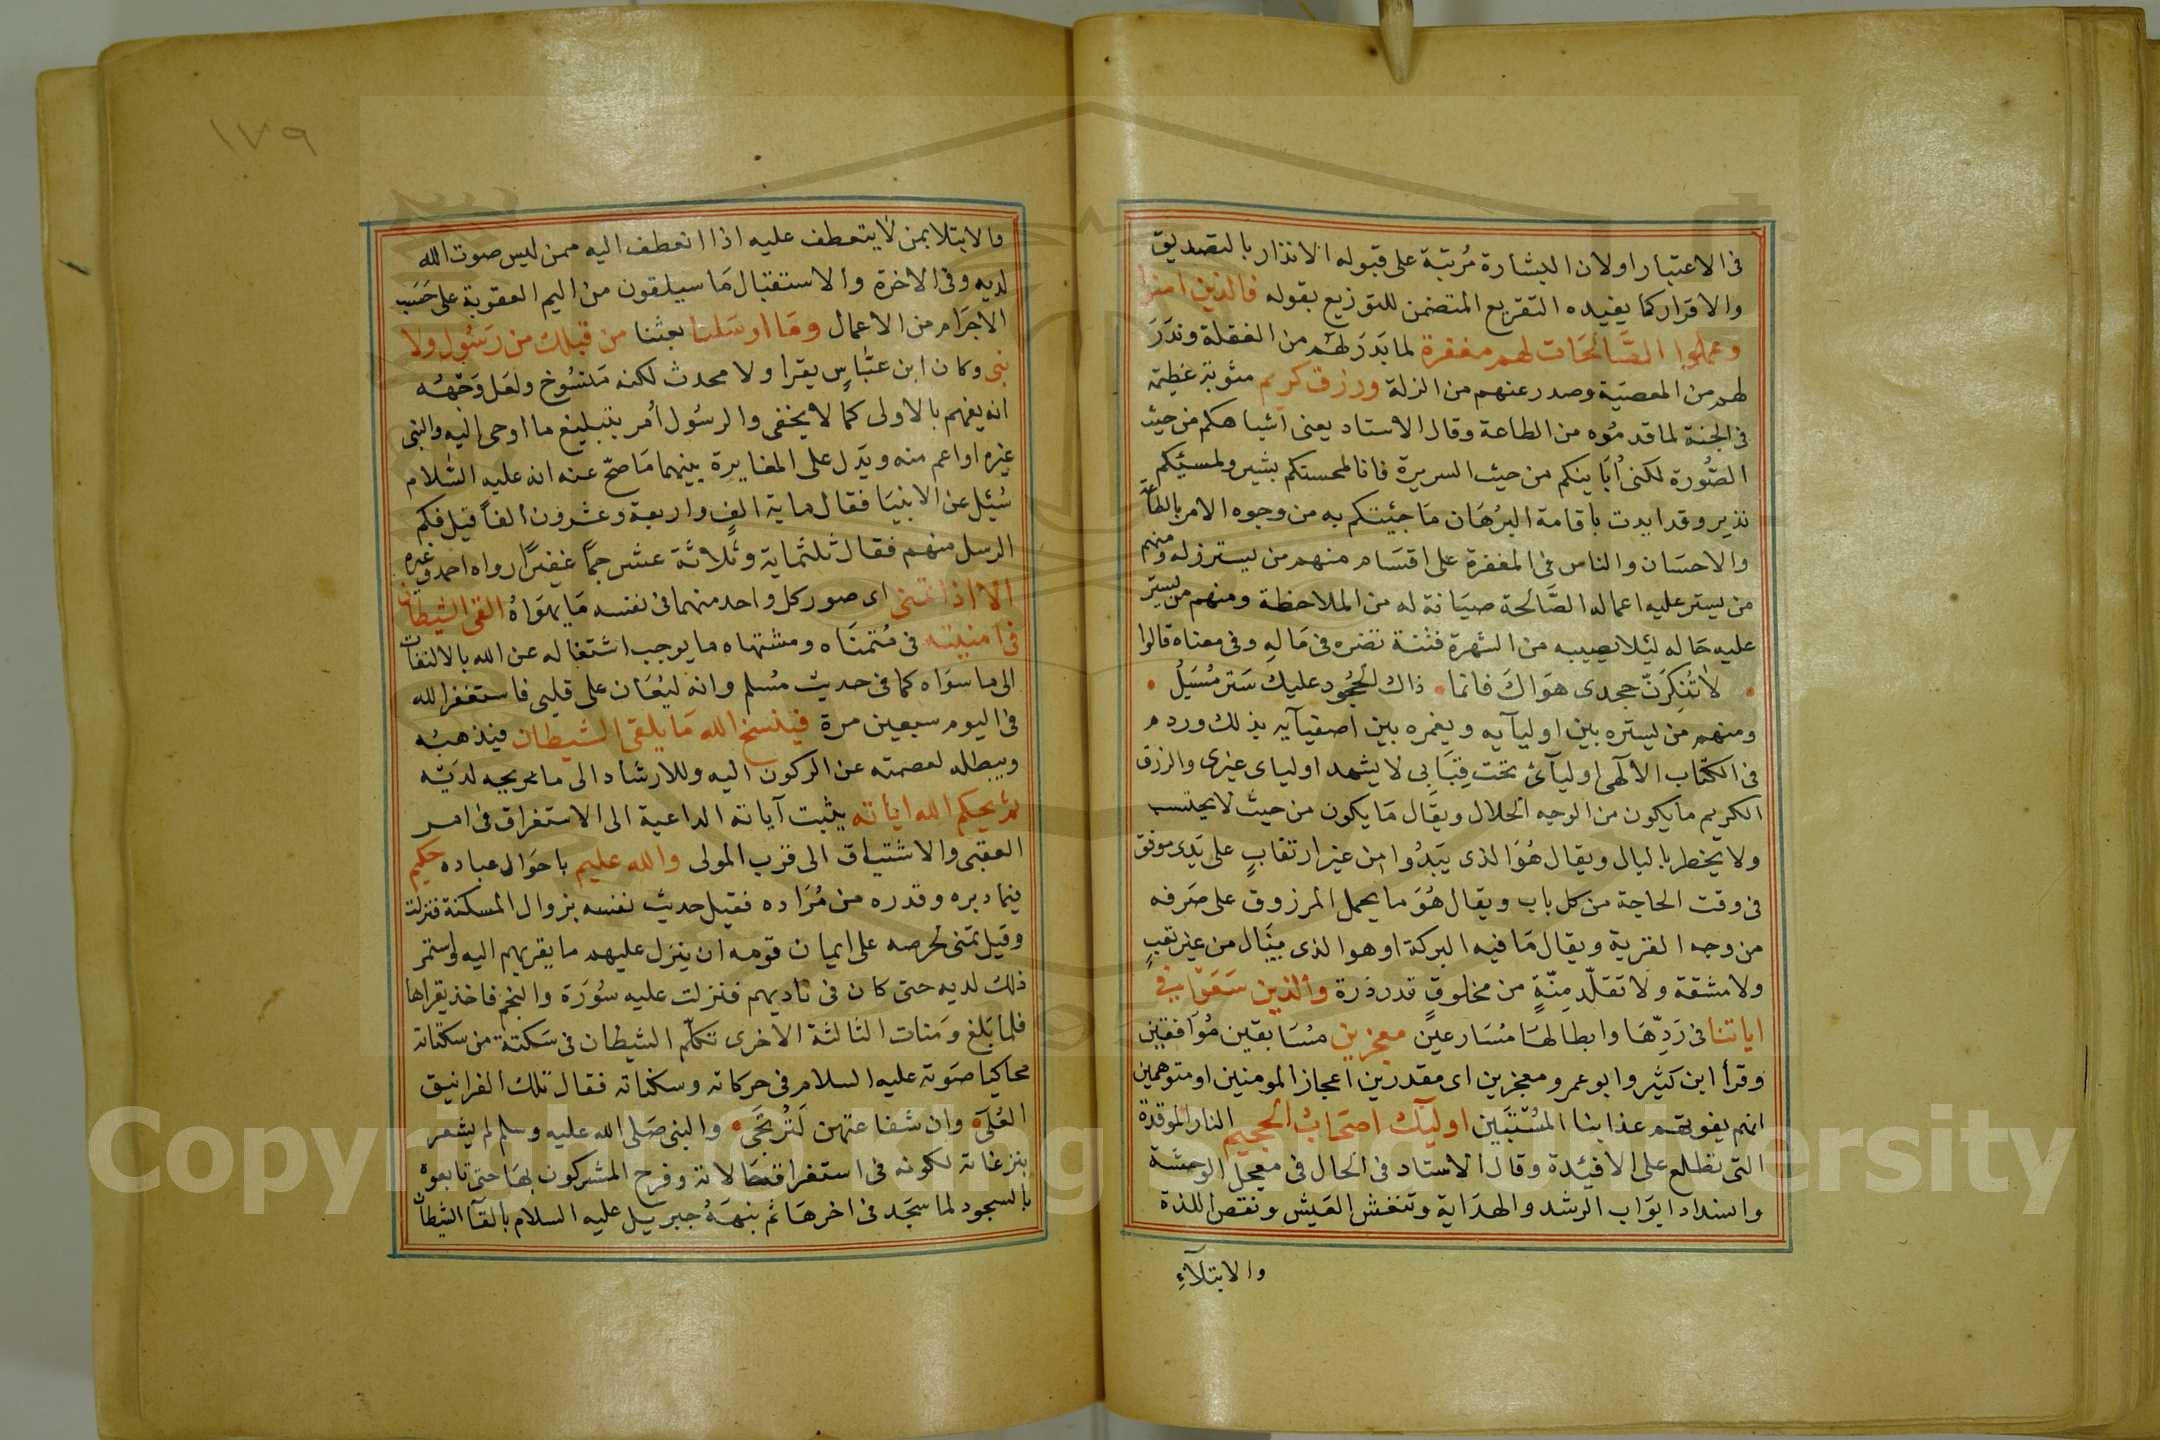 فى الاعتبار اولان البشارة مُرتبة على قبوله الانذار بالتصديق
والاقرار كما يفيده التقريع المتضمن للتوزيع بقوله فالذين امنوا
وعملوا الصَّالحَات لهم مغفرة لما بَدَرَ لهُم من الغفلة وندَرَ
لهم من المعصيَة وصدر عنهم من الزلة ورزق كريم مثوبة عظيمة
فى الجنة لما قدمُوه من الطاعة وقال الاستاد يعنى اشبا هكم من حيث
الصُّورة لكنى اُبَاينكم من حيث السريرة فانا لمحسنكم بشير ولمسيئكم
نذير وقد ايدت باقامة البرُهَان مَا جئيتكم به من وجوه الامر بالطاعة
والاحسَان والناس فى المغفرة على اقسَام منهم من يسترزله ومنهم
من يستر عليه اعماله الصَّالحة صيَانة له من الملاحظة ومنهم من يستر
عليه حَاله ليئلا يصيبه من الشهرة فتنة تضره فى مَالهِ وفى معناه قالوا
لاتُنِكرَنّ جحدى هوَاكَ فانما ذاك الجحُود عليك سَتر مُسَبلُ
ومنهم من يستره بين اوليآيه ويغمره بين اصفيآيه بذلك ورد م
فى الكتاب الالٓهى اوليآئ تحت قِبَابى لا يشهد اولياى غيرى والرزق
الكريم مايكون من الوجه الحلال ويقَال مَا يكون من حيث لايحتسب
ولايخطر بالبال ويقال هُوَ الذى يَبَدُوا من غير ارتقابٍ على يَدى موفق
فى وقت الحاجة من كل باب ويقال هُوَ ما يحمل المرزوق على صَرفه
من وجه القربة ويقال مَا فيه البركة اوهو الذى ينَال من غير تعبٍ
ولا مشقة ولا تقلّد مِنّةٍ من مخلوقٍ قدر ذرة والذين سَعَوا فى
اياتنا فى رَدِّهَا وابطالهَا مُسَارعين معجزين مُسَابقين مُوَافقين
وقرأ ابن كثير وابو عمرو معجزين اى مقدرين اعجاز المومنين او متوهمين
انهم يفوتهم عذابنا المُسْتبَين اوليٓك اصحَابُ الجحيم النار الموقدة
التى تطلع على الافيئدة وقال الاستاد فى الحال فى معجل الوحشة
وانسداد ابوَاب الرشد والهدَاية وتنغش العَيش ونقص اللذة
والابتلآءِ
١٧٩
والابتلا بمن لايتعطف عليه اذا انعطف اليه ممن ليس صوت الله
لديه وفى الاخرة والاستقبال مَا سيلقون من اليم العقوبة على حَسَب
الاجرَام من الاعمال ومَا ارسَلنا بعثنا من قبلك من رَسُولٍ ولا
نبى وكان ابن عبّاسٍ يقرا ولا محدث لكنه مَنسُوخ ولعَل وَجْهُه
انه يفهم بالاولى كما لايخفى والرسُول اُمر بتبليغ ما اوحى اليه والنبى
غيره اواعم منه ويَدل على المغايرة بينهما مَا صحّ عنه انه عليه السّلام
سُئيل عن الانبيَا فقال ماية الفٍ واربعة وعشرون الفاً قيل فكم
الرسل منهم فقال ثلثماية وثلاثة عشر جماً غفيرًا رواه احمد وغيره
الا اذا تمنى اى صور كل واحد منهما فى نفسه مَا يهوَاهُ القى الشيطان
فى امنيته فى مُتمنَاه ومشتهاه ما يوجب اشتغاله عن الله بالالتفات
الى ماسوَاه كما فى حديث مُسلم وانه ليُغَان على قلبى فاستغفر الله
فى اليوم سبعين مرة فينسخ الله مَا يلقى الشيطان فيذهبُه
ويبطله لعصمته عن الركون اليه وللارشاد الى ما يريجه لدَيْه
ثم يحكم الله اياته يثبت آياته الداعية الى الاستغراق فى امر
العقبى والاشتياق الى قرب المولى والله عليم باحوَال عباده حكيم
فيما دبره وقدره من مُرَاده فقيل حديث نفسه بزوال المسكنة فنزلت
وقيل تمَنى لحرصه على ايمان قومه ان ينزل عليهم ما يقربهم اليه واستمر
ذلك لديه حتى كان فى ناديهم فنزلت عليه سُورَة والنجم فاخذ يقراها
فلما بَلغ وَمنات الثالثة الاخرى تكلّم الشيطان فى سَكتة من سكتاته
محاكيا صَوته عليه السلام فى حركاته وسكناته فقال تلك الغرانيق
العُلىَ وان شفاعتهن لَتُرتجَى والنبى صَلى الله عليه وسلم لم يشعر
بنزغاته لكونه فى استغراق حَالاته وفرح المشركون بهَا حتى تابعوه
بالسجود لما سجَد فى اخرهَا ثم بنهَهُ جبريل عليه السلام بالقآ الشيطان
Copyright © King Saud University